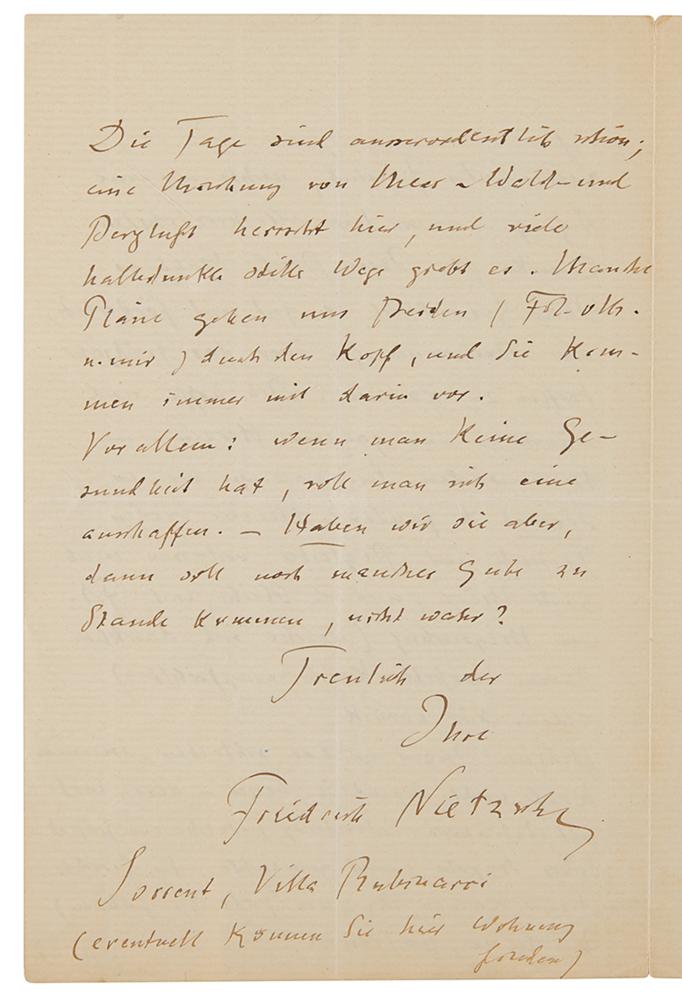 Die Tage sind ausserordentlich schön;
eine Mischung von Meer- Wald- und
Bergluft herrscht hier, und viele
halbdunkle stille Wege giebt es. Manche
Pläne gehen uns Beiden (
u. mir) durch den Kopf, und Sie kom-
men immer mit darin vor.
Vor allem: wenn man keine Ge-
sundheit hat, soll man sich eine
anschaffen. — Haben wir sie aber,
dann soll noch manches Gute zu
Stande kommen, nicht wahr?
Treulich der
Ihre
Friedrich Nietzsche
Sorrent, Villa Rubinacci
(eventuell können Sie hier Wohnung
finden)